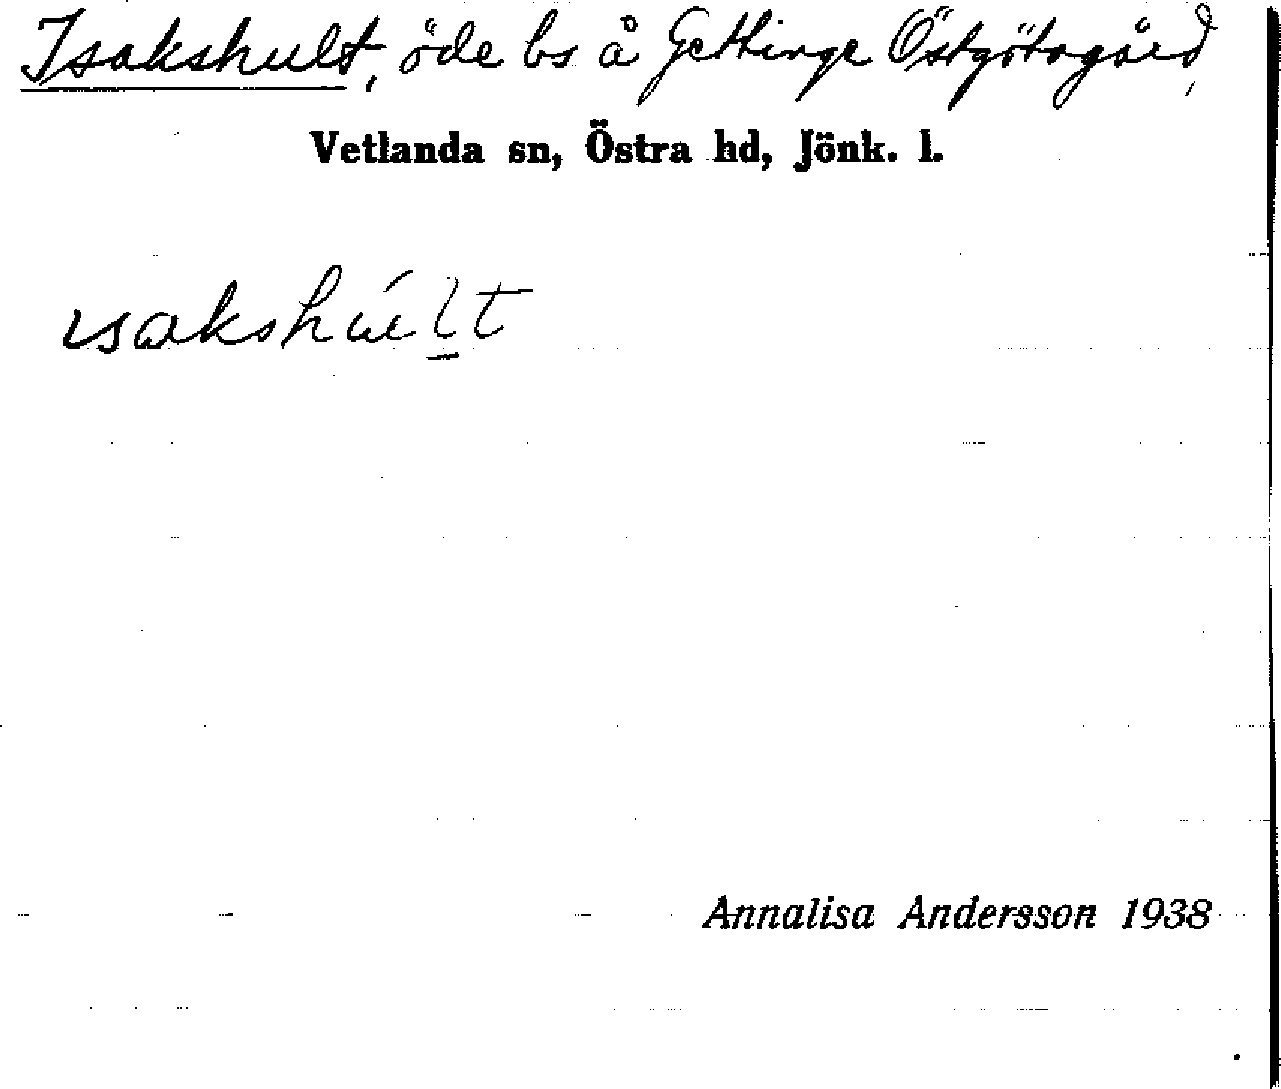 Isakshult, öde bs å Gettinge Östgötagård,
Vetlanda sn, Östra hd, Jönk. l.
ısakshúlt
Annalisa Andersson 1938